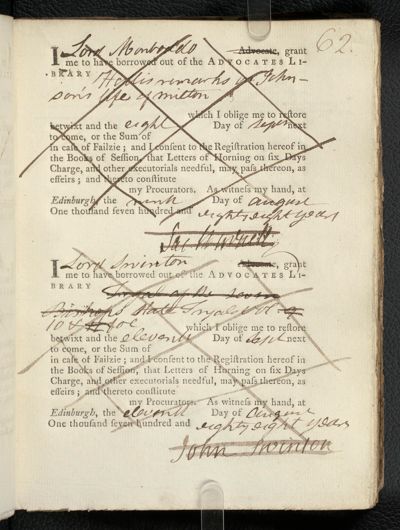 62.
I Lord Monboddo Advocate, grant
me to have borrowed out of the ADVOCATES LI-
BRARY Hollis remarks on John-
son's life of Milton
which I oblige me to restore
betwixt and the eight Day of Septr next
to come, or the Sum of
in case of Failzie; and I consent to the Registration hereof in
the Books of Session, that Letters of Horning on six Days
Charge, and other executorials needful, may pass thereon, as
effeirs; and thereto constitute
my Procurators. As witness my hand, at
Edinburgh, the ninth Day of August
One thousand seven hundred and eighty eight years
Ja: Burnett
I Lord Swinton Advocate, grant
me to have borrowed out of the ADVOCATES LI-
BRARY Tryal of the seven
Bishops State Tryals
which I oblige me to restore
betwixt and the eleventh Day of Sept next
to come, or the Sum of
in case of Failzie; and I consent to the Registration hereof in
the Books of Session, that Letters of Horning on six Days
Charge, and other executorials needful, may pass thereon, as
effeirs; and thereto constitute
my Procurators. As witness my hand, at
Edinburgh, the eleventh Day of August
One thousand seven hundred and eighty eight years
John Swinton